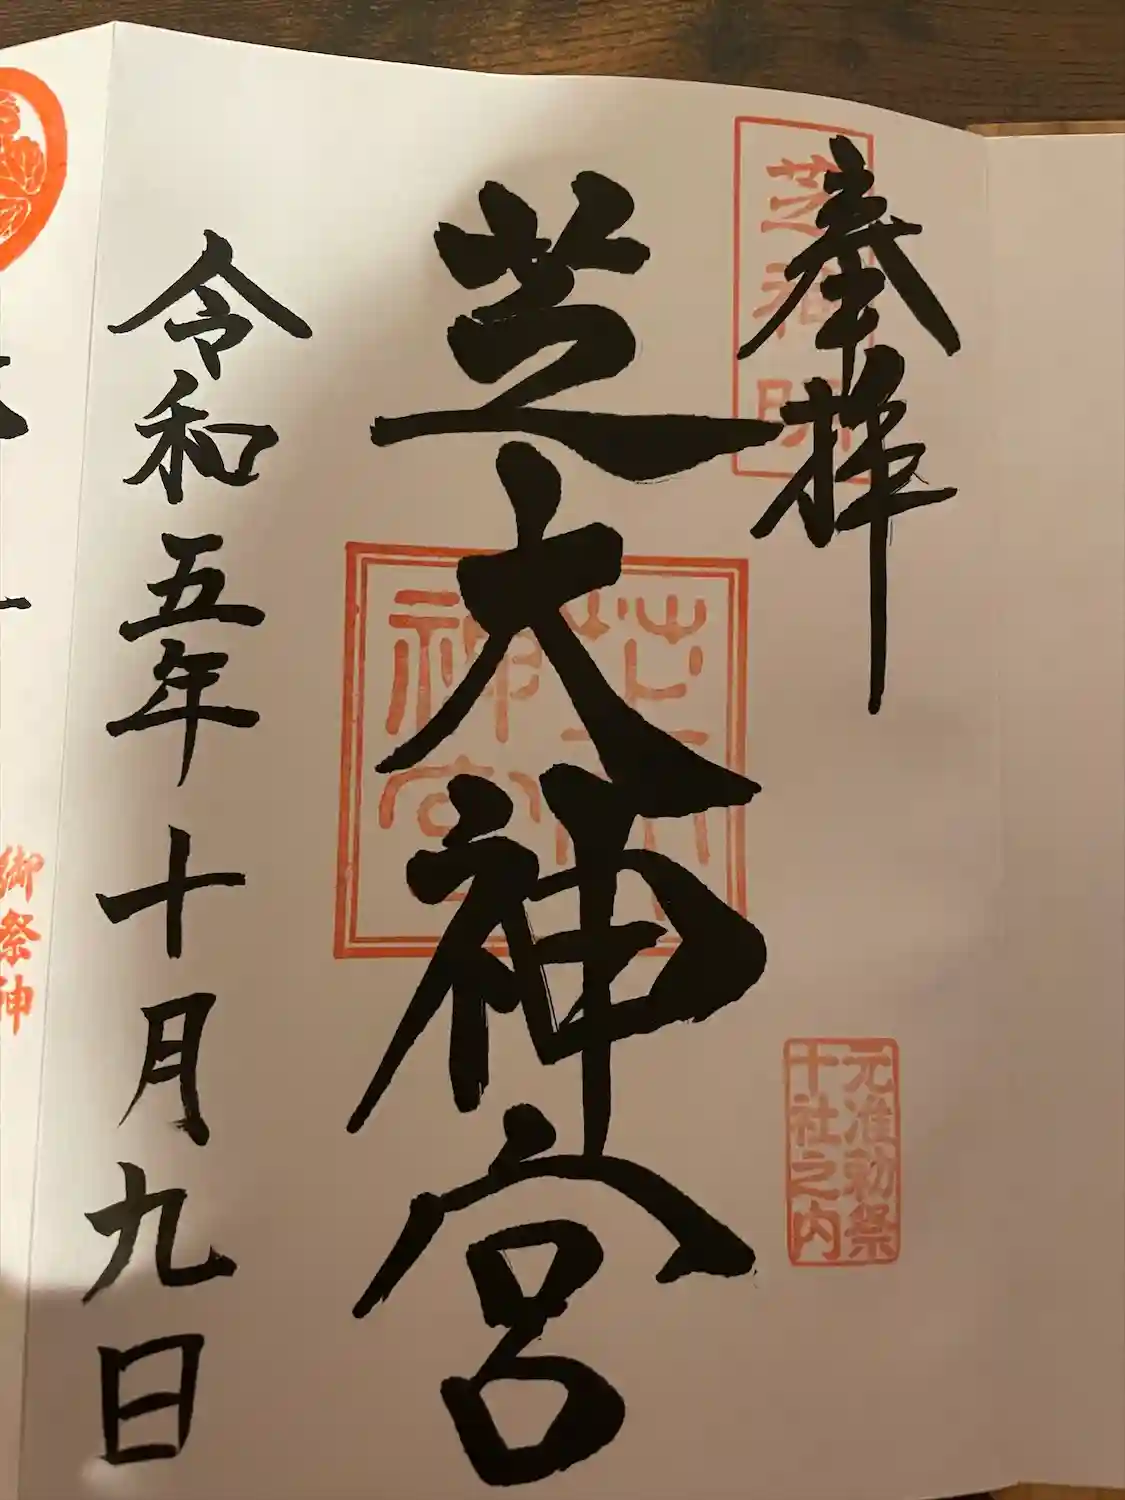 奉拝
芝神明
芝大神宮
芝大
神宮
元准勅祭
十社之内
令和五年十月九日
御祭神